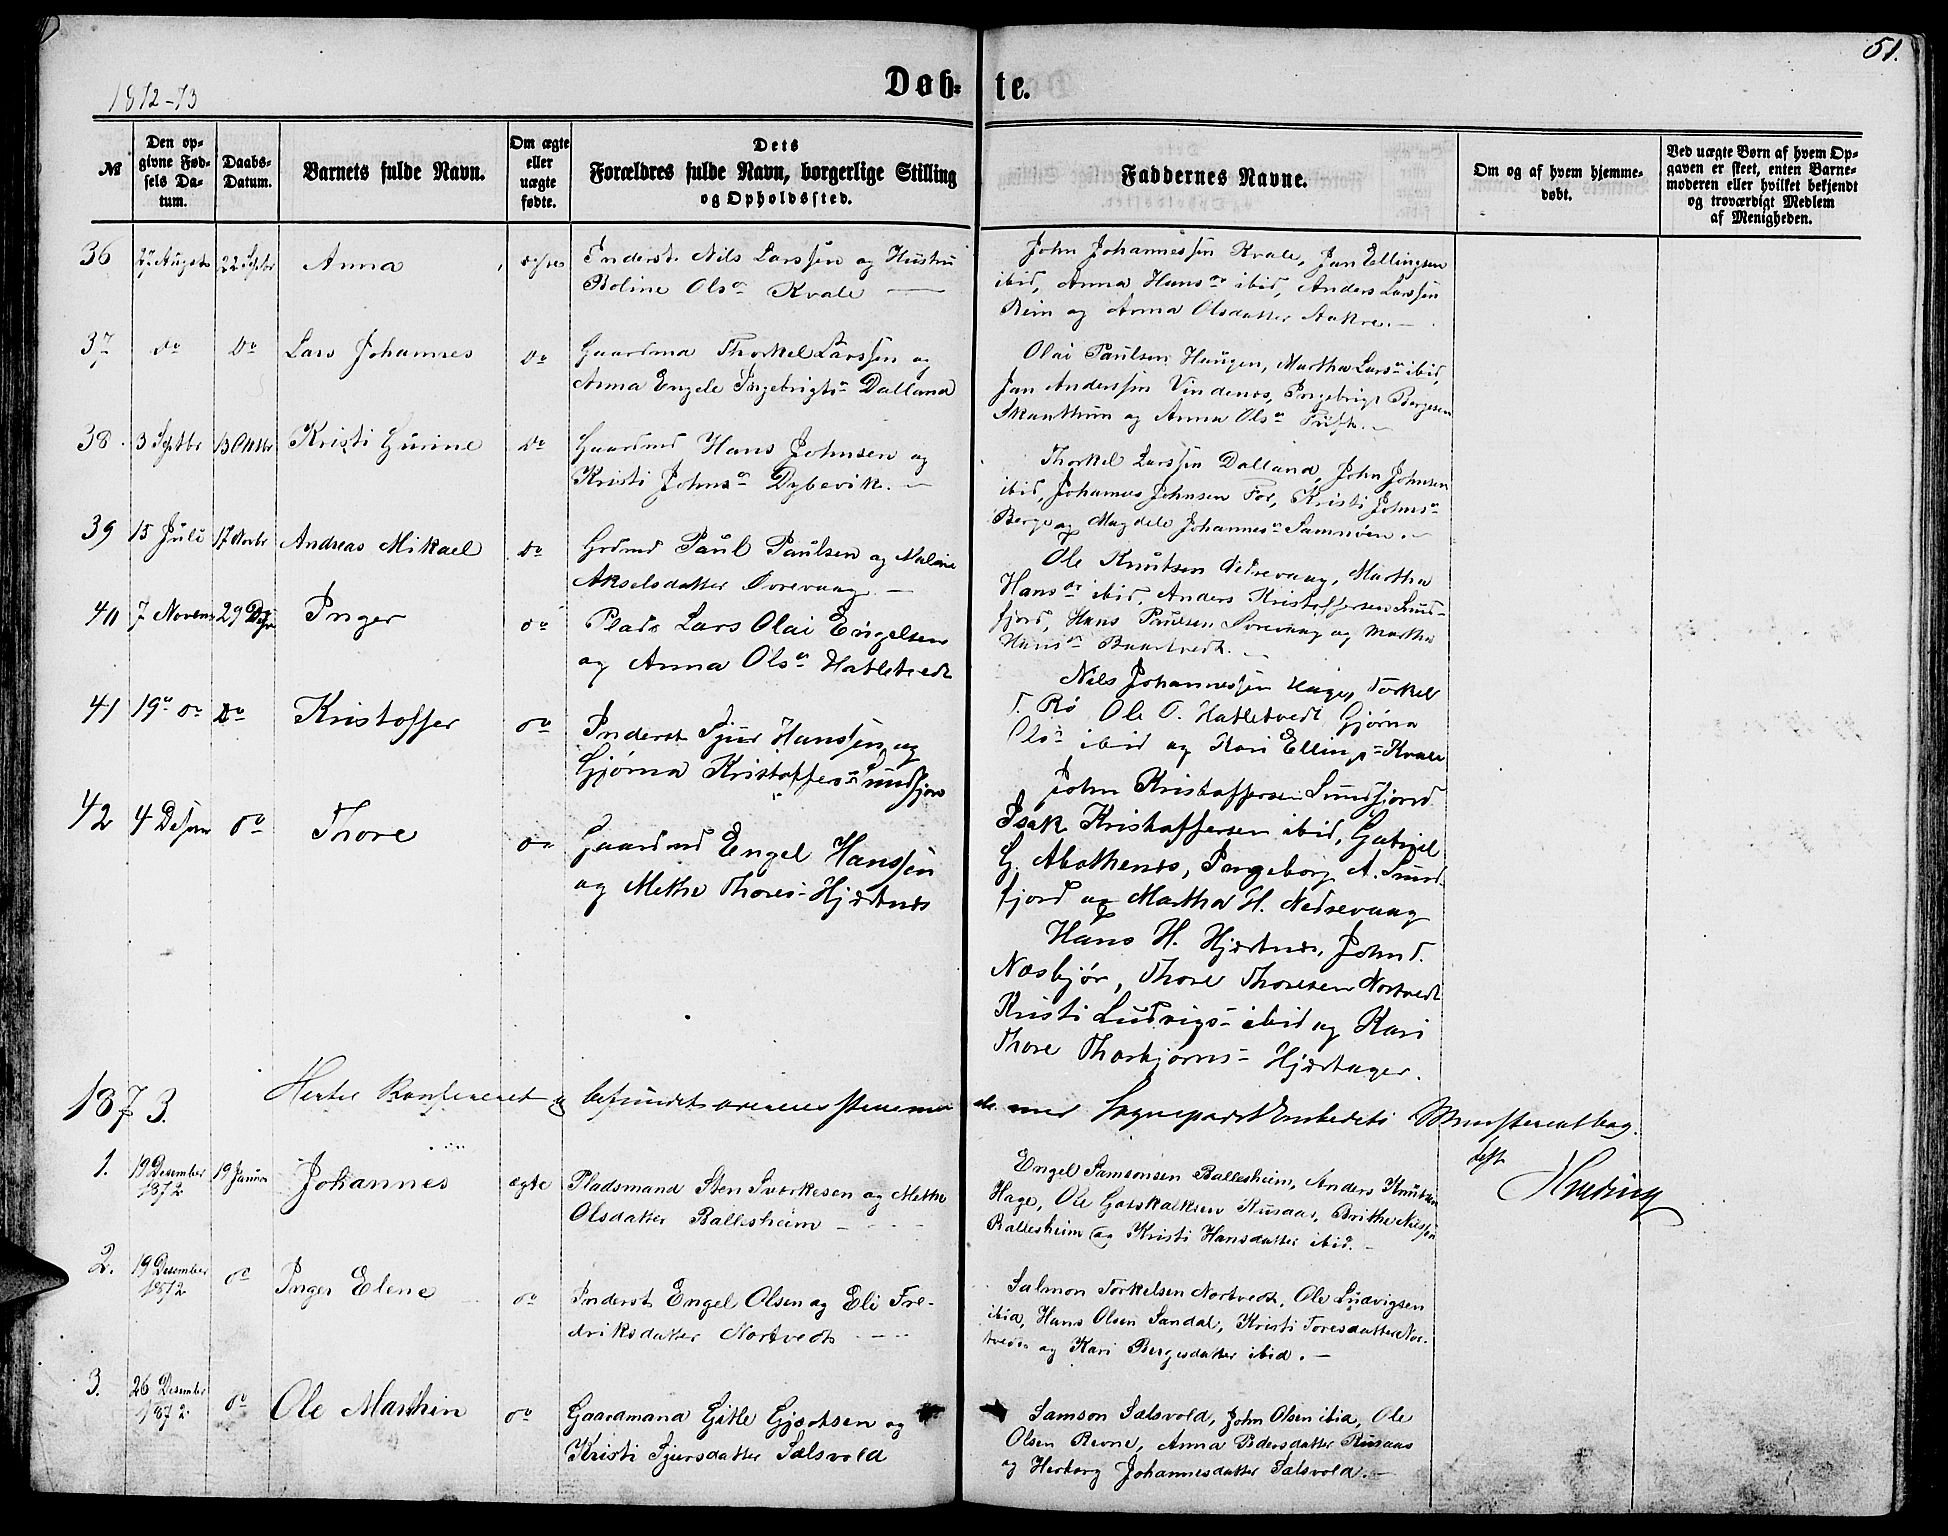 51.
1872-73
Døb-te.
№
Den op-
givne Fød-
sels Da-
tum.
Daabs-
Datum.
Barnets fulde Navn.
Om ægte
eller
uægte
fødte.
Dets
Forældres fulde Navn, borgerlige Stilling
og Opholdssted.
Faddernes Navne.
Om og af hvem hjemme-
døbt.
Ved uægte Børn af hvem Op-
gaven er skeet, enten Barne-
moderen eller hvilket bekjendt
og troværdigt Medlem
af Menigheden.
36 27 August 22 Septbr Anna
Inderst. Nils Larssen og Hustru
Boline Olsa Kvale
John Johannessen Kvale, Jan Ellingsen
ibid, Anna Hansa ibid, Anders Larssen
Reim og Anna Olsdatter Aakre.
37 do do Lars Johannes do
Gaardmd Thorkel Larssen og
Anna Engele Ingebrigts- Dalland
Olai Paulsen Haugen, Martha Lars- ibid,
Jan Anderssen Vindenes, Ingebrigt Børgesen
og Anna Olsa
38. 3 Septbr 13 Oktbr Kristi Gurine do
Gaardmd Hans Johnsen og
Kristi Johnsa Dybevik.
Thorkel Larssen Dalland, John Johnsen
ibid, Johannes Johnsen For, Kristi Johnsa
Berge og Magdele Johannesa Samnøen.
39 15 Juli 17 Novbr Andreas Mikael do
Grdmd Paul Paulsen og Malene
Akselsdatter Øvrevaag
Ole Knutsen Nedrevaag, Martha
Hansa ibid, Anders Kristoffersen Sund-
fjord, Hans Paulsen Øvrevaag og Martha
Hansa
40 7 Novem 29 Desbr Inger do
Plads Lars Olai Engelsen
og Anna Olsa Hatletvedt
Nils Johannessen Hage, Torkel
T. Rø Ole T. Hatletvedt Gjørna
Olsa ibid og Kari Ellings- Kvale
41 19de do do Kristoffer do
Inderst Sjur Hanssen og
Gjørna Kristoffers- Sundfjord
John Kristoffersen Sundfjord
Isak Kristoffersen ibid, Gabriel
G. Abothenes, Ingeborg A. Sund-
fjord og Martha H. Nedrevaag
42 4 Desem do Thore do
Gaardmd Engel Hanssen
og Methe Thores- Hjertnes
Hans H. Hjertnes, John T.
Næsbjør, Thore Thoresen Nortvedt
Kristi Ludvigs- ibid og Kari
Thore Thorbjørns- Hjertager.
1873. Hertil Konfereret og befundet overensstemmende med Sognepræst Embedets Ministerialbog.
1. 19 Desember 1872 19 Januar Johannes ægte
Pladsmand Sten Sværkesen og Methe
Olsdatter Ballesheim
Engel Samsonsen Ballesheim, Anders Knutsen
Hage, Ole Gotskalksen Rusaas, Brithe Nilssen
Ballesheim og Kristi Hansdatter ibid.
2. 19 Desember 1872 do Inger Elene do
Inderst Engel Olsen og Eli Fre-
driksdatter Nortvedt
Salmon Torkelsen Nortvedt, Ole Ludvigsen
ibid, Hans Olsen Sandal, Kristi Toresdatter Nor-
tvedt og Kari Børgesdatter ibid.
3. 26 Desember 1872 do Ole Marthin do
Gaardmand Gitle Gjertsen og
Kristi Sjursdatter Sælsvold
Samson Sælsvold, John Olsen ibid, Ole
Olsen Revne, Anna Pedersdatter Rusaas
og Herborg Johannesdatter Sælsvold.